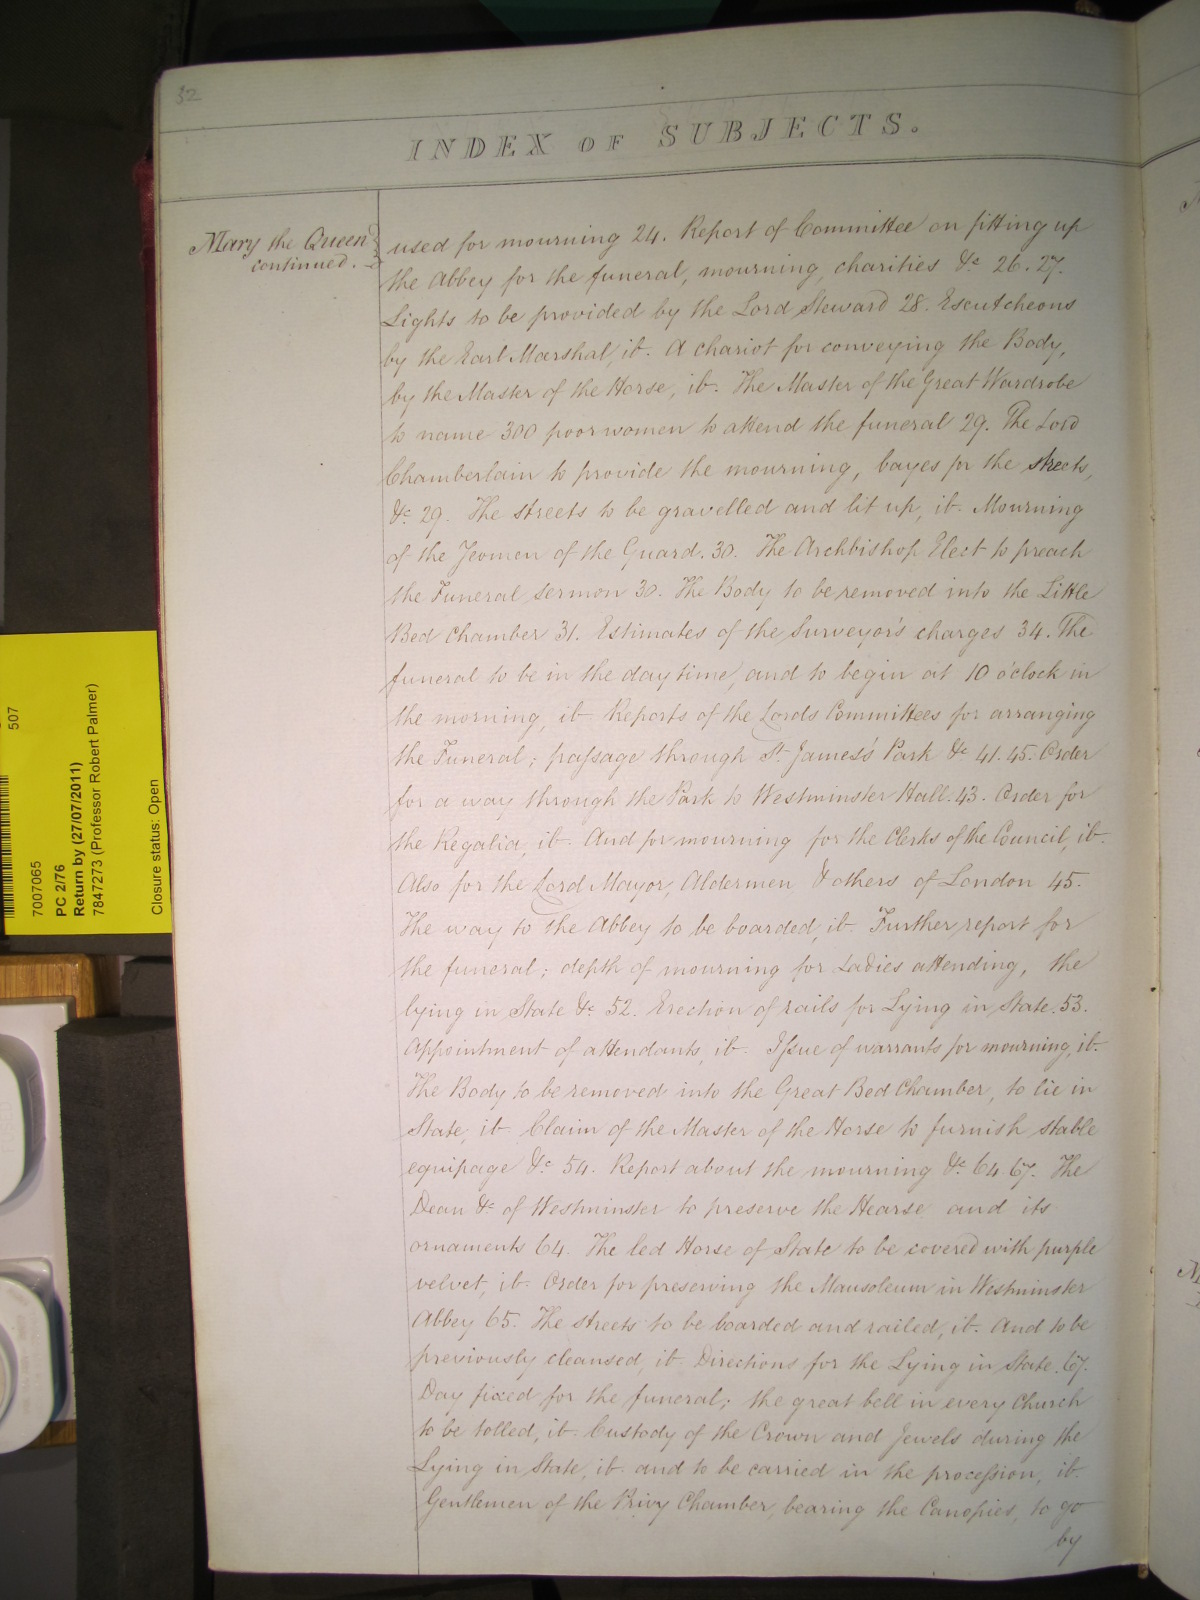 32
INDEX OF SUBJECTS.
Mary the Queen
continued.
used for mourning 24. Report of Committee on fitting up
the Abbey for the funeral, mourning, charities &c 26. 27.
Lights to be provided by the Lord Steward 28. Escutcheons
by the Earl Marshal, ib. A chariot for conveying the Body,
by the Master of the Horse, ib. The Master of the Great Wardrobe
to name 300 poor women to attend the funeral 29. The Lord
Chamberlain to provide the mourning, bayes for the streets,
&c 29. The streets to be gravelled and lit up, ib. Mourning
of the Yeomen of the Guard. 30. The Archbishop Elect to preach
the Funeral Sermon 30. The Body to be removed into the Little
Bed Chamber 31. Estimates of the Surveyor's charges 34. The
funeral to be in the day time, and to begin at 10 o'clock in
the morning, ib. Reports of the Lords Committees for arranging
the Funeral; passage through St James's Park &c 41. 45. Order
for a way through the Park to Westminster Hall. 43. Order for
the Regalia, ib. And for mourning for the Clerks of the Council, ib.
Also for the Lord Mayor, Aldermen & others of London 45.
The way to the Abbey to be boarded, ib. Further report for
the funeral; depth of mourning for Ladies attending, the
lying in State &c 52. Erection of rails for Lying in State. 53.
Appointment of attendants, ib. Issue of warrants for mourning, ib.
The Body to be removed into the Great Bed Chamber, to lie in
State, ib. Claim of the Master of the Horse to furnish stable
equipage &c 54. Report about the mourning &c 64. 67. The
Dean &c of Westminster to preserve the Hearse and its
ornaments 64. The led Horse of State to be covered with purple
velvet, ib. Order for preserving the Mausoleum in Westminster
Abbey 65. The streets to be boarded and railed, ib. And to be
previously cleansed, ib. Directions for the Lying in State. 67.
Day fixed for the funeral; the great bell in every Church
to be tolled, ib. Custody of the Crown and Jewels during the
Lying in State, ib. and to be carried in the procession, ib.
Gentlemen of the Privy Chamber, bearing the Canopies, to go
by
507
7007065
PC 2/76
Return by (27/07/2011)
7847273 (Professor Robert Palmer)
Closure status: Open